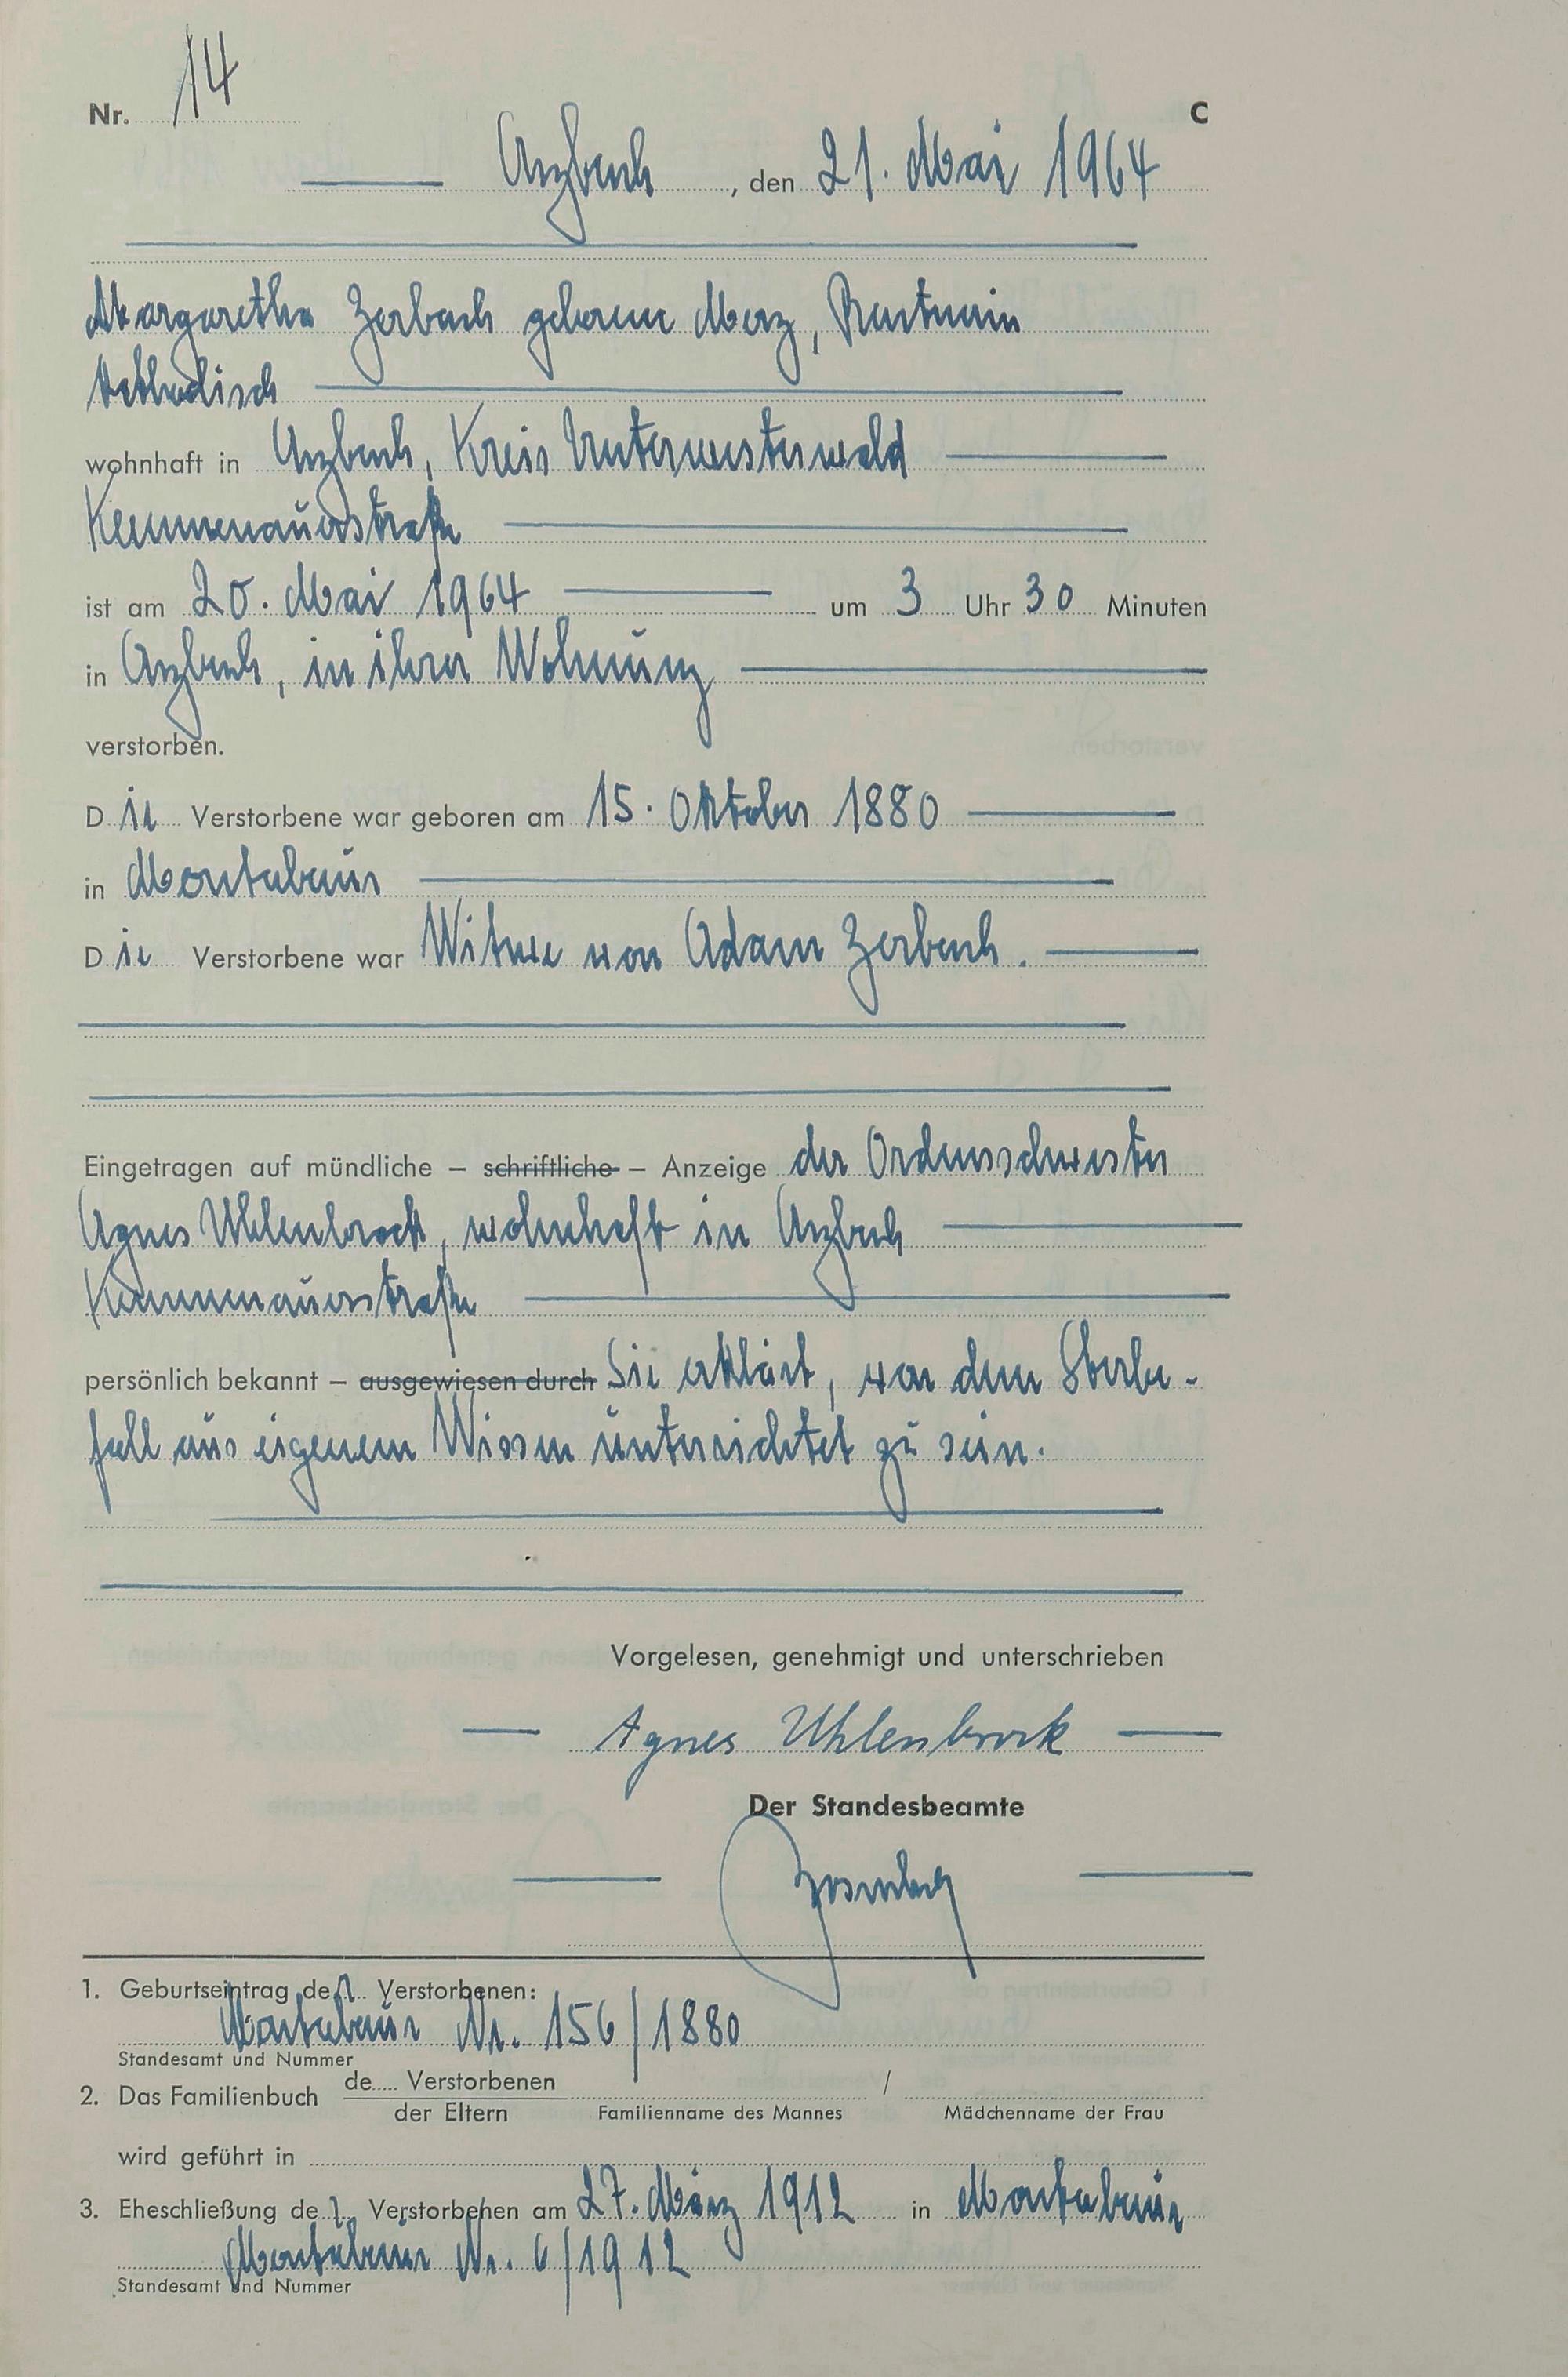 Nr. 14
C
Arzbach, den 21. Mai 1964
Margaretha Zerbach geborene Merz, Rentnerin
katholisch
wohnhaft in Arzbach, Kreis Unterwesterwald
Kemmenauerstraße
ist am 20. Mai 1964 um 3 Uhr 30 Minuten
in Arzbach, in ihrer Wohnung
verstorben.
Die Verstorbene war geboren am 15. Oktober 1880
in Montabaur
Die Verstorbene war Witwe von Adam Zerbach.
Eingetragen auf mündliche – schriftliche – Anzeige der Ordensschwester
Agnes Uhlenbrock, wohnhaft in Arzbach
Kemmenauerstraße
persönlich bekannt – ausgewiesen durch Sie erklärt, von dem Sterbe-
fall aus eigenem Wissen unterrichtet zu sein.
Vorgelesen, genehmigt und unterschrieben
Agnes Uhlenbrock
Der Standesbeamte
1. Geburtseintrag der Verstorbenen:
Montabaur Nr. 156/1880
Standesamt und Nummer
2. Das Familienbuch de Verstorbenen /
der Eltern Familienname des Mannes Mädchenname der Frau
wird geführt in
3. Eheschließung der Verstorbenen am 27. März 1912 in Montabaur
Montabaur Nr. 6/1912
Standesamt und Nummer